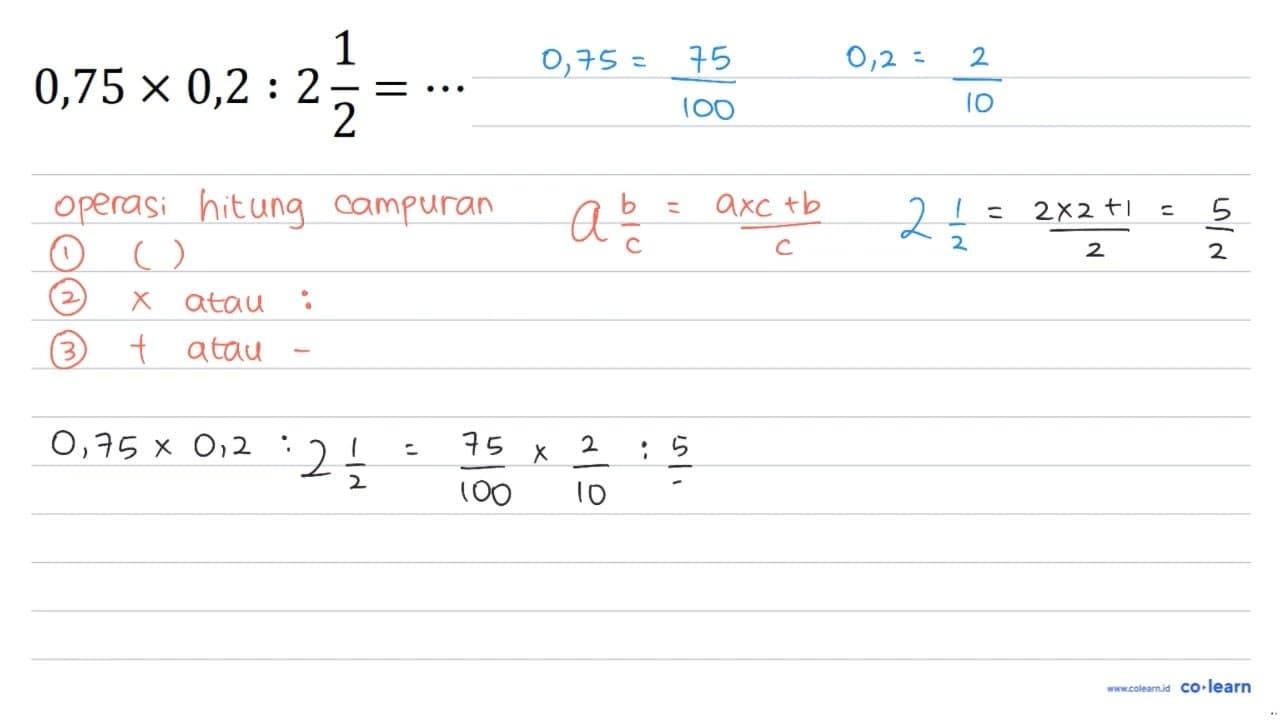 0,75 × 0,2 : 2 1/2 = ...
0,75 = 75/100
0,2 = 2/10
operasi hitung campuran
① ( )
② x atau :
③ + atau -
a b/c = axc+b/c
2 1/2 = 2x2+1/2 = 5/2
0,75 x 0,2 : 2 1/2 = 75/100 x 2/10 : 5/-
www.colearn.id co·learn